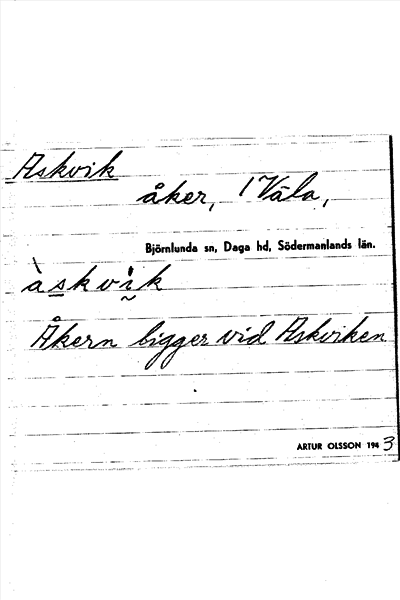 Askvik
åker, 1 Väla,
Björnlunda sn, Daga hd, Södermanlands län.
àskvik
Åkern ligger vid Askviken
ARTUR OLSSON 1943